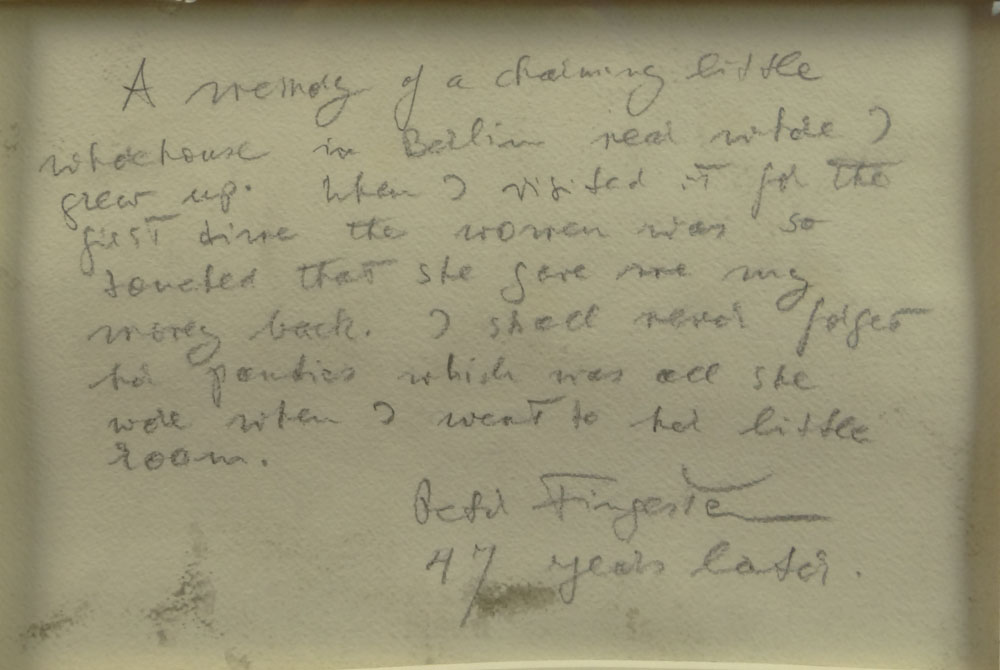 A memory of a charming little
whorehouse in Berlin near where I
grew up. When I visited it for the
first time the women was so
touched that she gave me my
money back. I shall never forget
her panties which was all she
wore when I went to her little
room.
Peter Fingesten
47 years later.